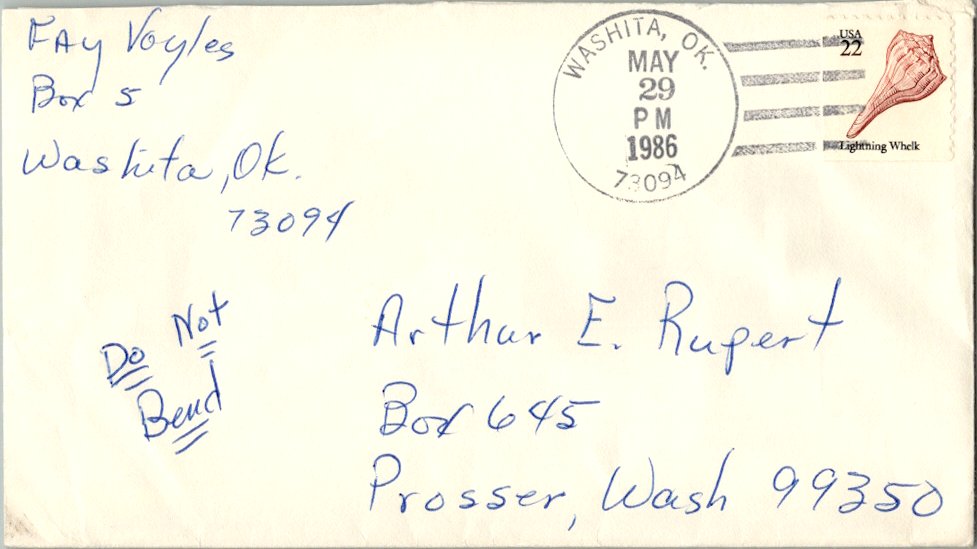 Fay Voyles
Box 5
Washita, Ok.
73094
WASHITA, OK.
MAY
29
PM
1986
73094
USA
22
Lightning Whelk
Do Not
Bend
Arthur E. Rupert
Box 645
Prosser, Wash 99350